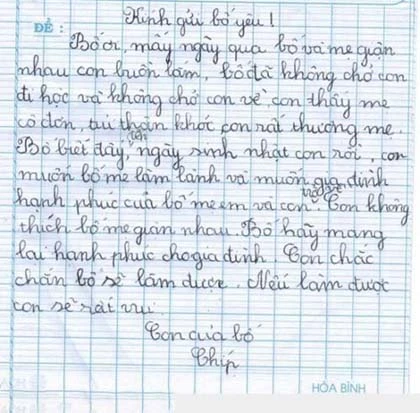 Kính gửi bố yêu!
ĐỀ:
Bố ơi, mấy ngày qua bố và mẹ giận
nhau con buồn lắm, bố đã không chở con
đi học và không chở con về con thấy mẹ
cô đơn, tủi thận khóc con rất thương mẹ.
Bố biết đấy, tới ngày sinh nhật con rồi, con
muốn bố mẹ làm lành và muốn gia đình
hạnh phúc của bố mẹ em và con. Con không
thích bố mẹ giận nhau. Bố hãy mang
lại hạnh phúc cho gia đình. Con chắc
chắn bố sẽ làm được. Nếu làm được
con sẽ rất vui.
Con của bố
Chíp
HÒA BÌNH